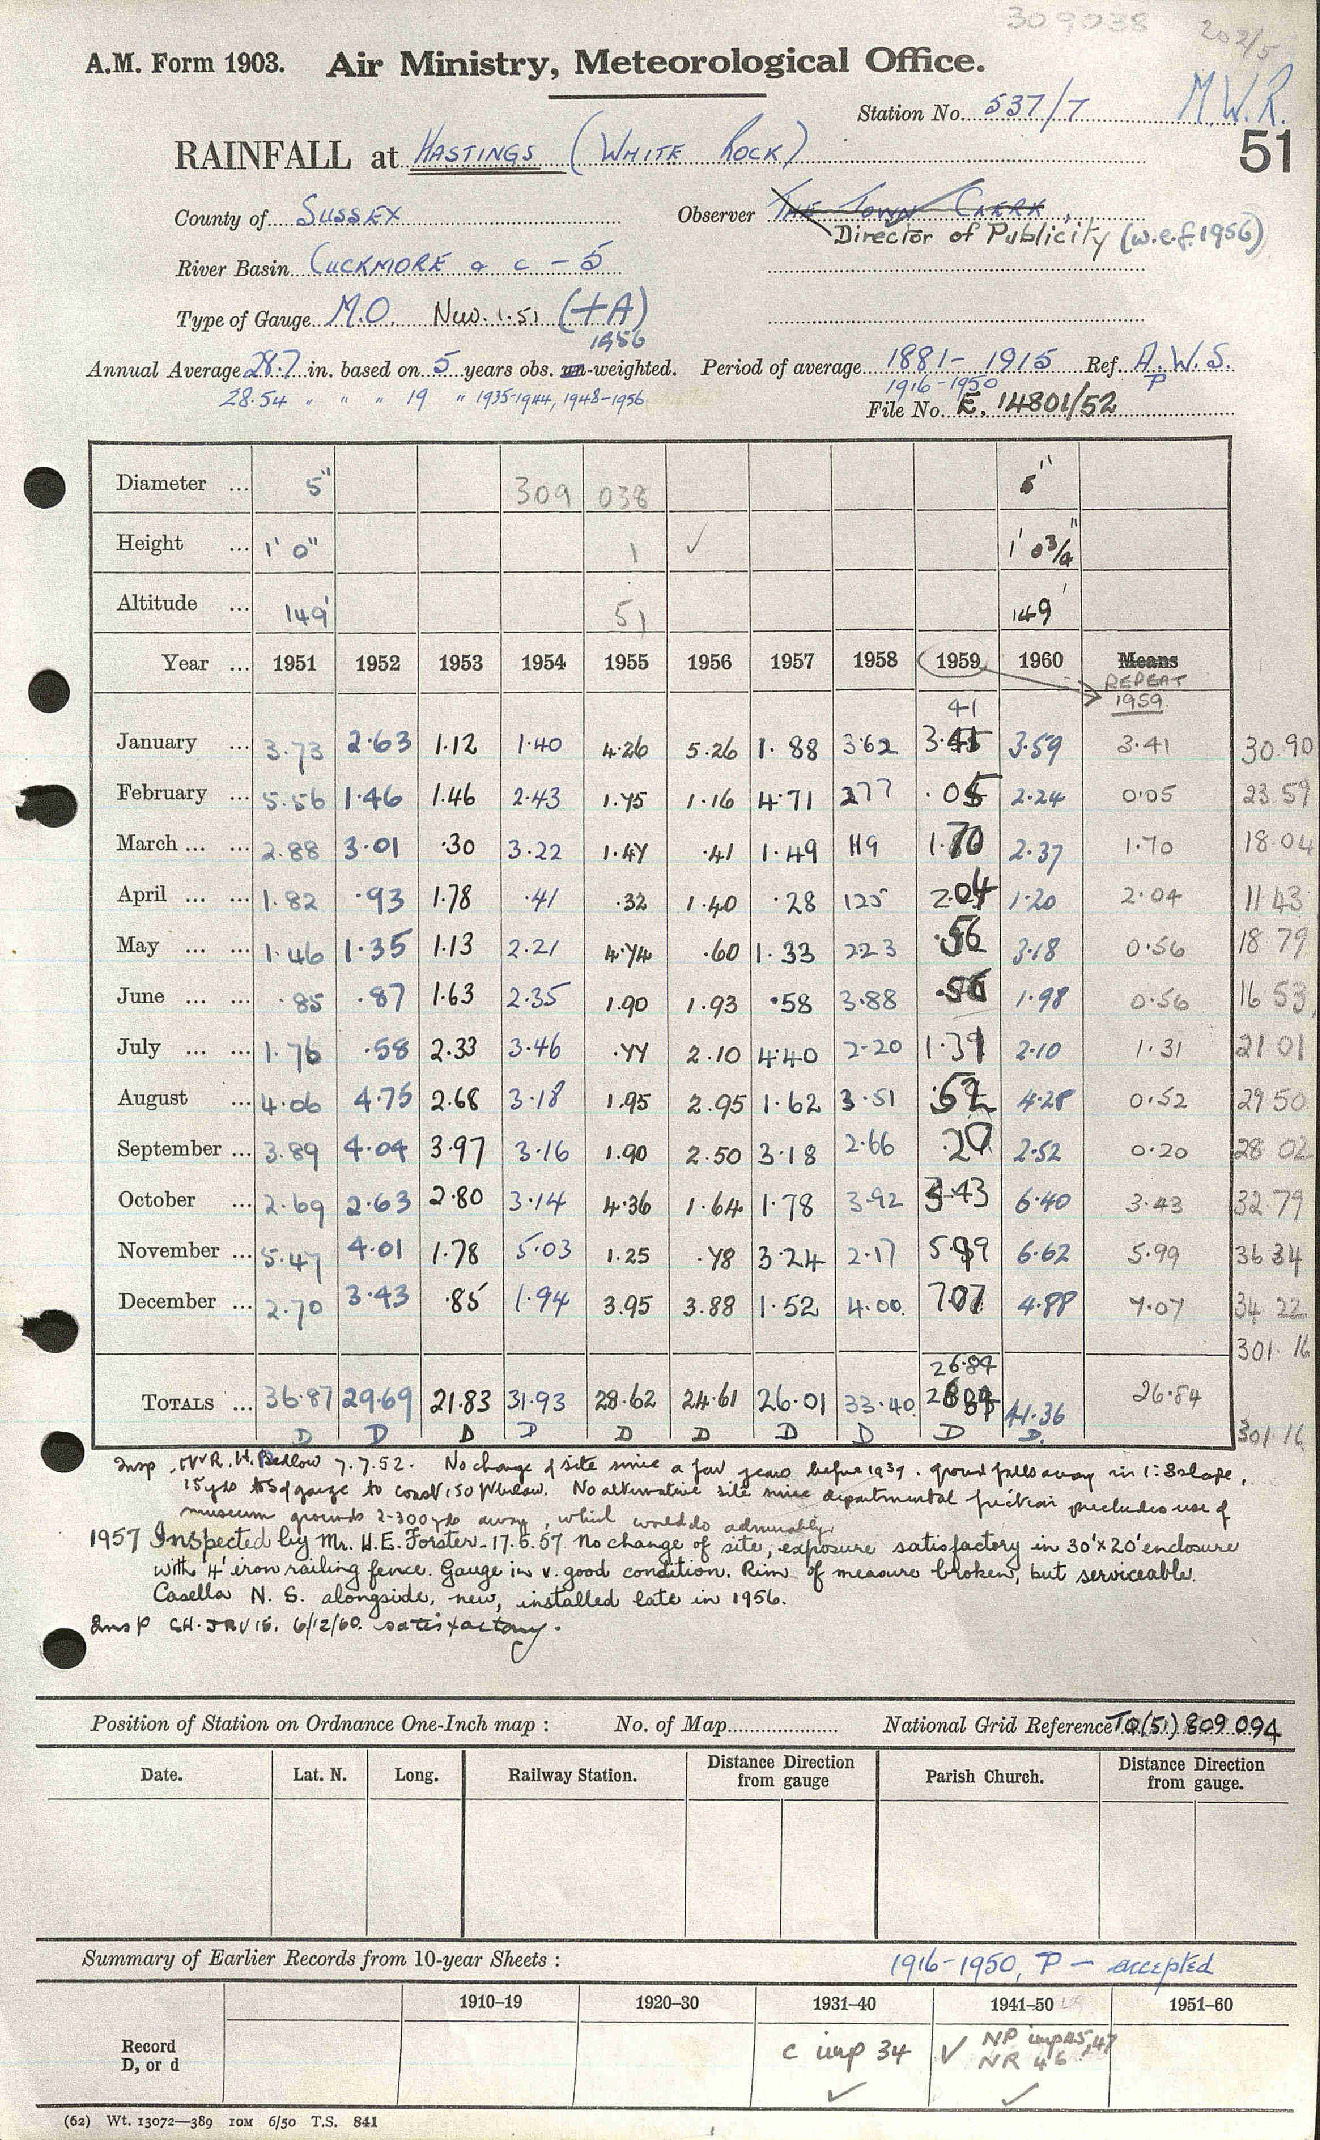 309038 202/5
A.M. Form 1903. Air Ministry, Meteorological Office.
Station No. 537/7 M.W.R.
51
RAINFALL at HASTINGS (WHITE ROCK)
County of SUSSEX Observer THE TOWN CLERK,
Director of Publicity (w.e.f. 1956)
River Basin CUCKMORE a c - 5
Type of Gauge M.O. New. 1.51 (+A)
1956
Annual Average 28.7 in. based on 5 years obs. un-weighted. Period of average 1881-1915 Ref. A.W.S.
28.54 " " " 19 " 1935-1944, 1948-1956 1916-1950 P
File No. E. 14801/52
Diameter ... 5" 309 038 5"
Height ... 1' 0" 1 ✓ 1' 0 3/4"
Altitude ... 149' 51 149'
Year ... 1951 1952 1953 1954 1955 1956 1957 1958 1959 1960 Means
REPEAT
1959
41
January ... 3.73 2.63 1.12 1.40 4.26 5.26 1.88 3.62 3.45 3.59 3.41 30.90
February ... 5.56 1.46 1.46 2.43 1.75 1.16 4.71 277 .05 2.24 0.05 23.59
March ... ... 2.88 3.01 .30 3.22 1.47 .41 1.49 119 1.70 2.37 1.70 18.04
April ... ... 1.82 .93 1.78 .41 .32 1.40 .28 125 2.04 1.20 2.04 11 43
May ... ... 1.46 1.35 1.13 2.21 4.74 .60 1.33 223 .56 3.18 0.56 18 79
June ... ... .85 .87 1.63 2.35 1.90 1.93 .58 3.88 .56 1.98 0.56 16 53
July ... ... 1.76 .58 2.33 3.46 .77 2.10 4.40 2.20 1.31 2.10 1.31 21 01
August ... 4.06 4.75 2.68 3.18 1.95 2.95 1.62 3.51 .52 4.28 0.52 29 50
September ... 3.89 4.04 3.97 3.16 1.90 2.50 3.18 2.66 .20 2.52 0.20 28 02
October ... 2.69 2.63 2.80 3.14 4.36 1.64 1.78 3.92 3.43 6.40 3.43 32.79
November ... 5.47 4.01 1.78 5.03 1.25 .78 3.24 2.17 5.99 6.62 5.99 36 34
December ... 2.70 3.43 .85 1.94 3.95 3.88 1.52 4.00 7.07 4.88 7.07 34 22
301.16
26.84
TOTALS ... 36.87 29.69 21.83 31.93 28.62 24.61 26.01 33.40 41.36 26.84
D D D D D D D D D D. 301.16
Insp. Mr R. H. Bedlow 7.7.52. No change of site since a few years before 1939. ground falls away in 1:8 slope,
15 yds S of gauge to coast 150 ft below. No alternative site since departmental friction precludes use of
museum grounds 2-300 yds away, which would do admirably.
1957 Inspected by Mr. H.E. Forster. 17.6.57. No change of site, exposure satisfactory in 30'x20' enclosure
with 4' iron railing fence. Gauge in v. good condition. Rim of measure broken, but serviceable.
Casella N.S. alongside, new, installed late in 1956.
Insp 6/12/60. satisfactory.
Position of Station on Ordnance One-Inch map : No. of Map National Grid Reference TQ(51) 809 094
Date. Lat. N. Long. Railway Station. Distance Direction from gauge Parish Church. Distance Direction from gauge.
Summary of Earlier Records from 10-year Sheets : 1916-1950, P - accepted
1910-19 1920-30 1931-40 1941-50 1951-60
Record
D, or d c imp 34 ✓ NP imp 45, 47
NR 46
✓ ✓
(62) Wt. 13072—389 10M 6/50 T.S. 841